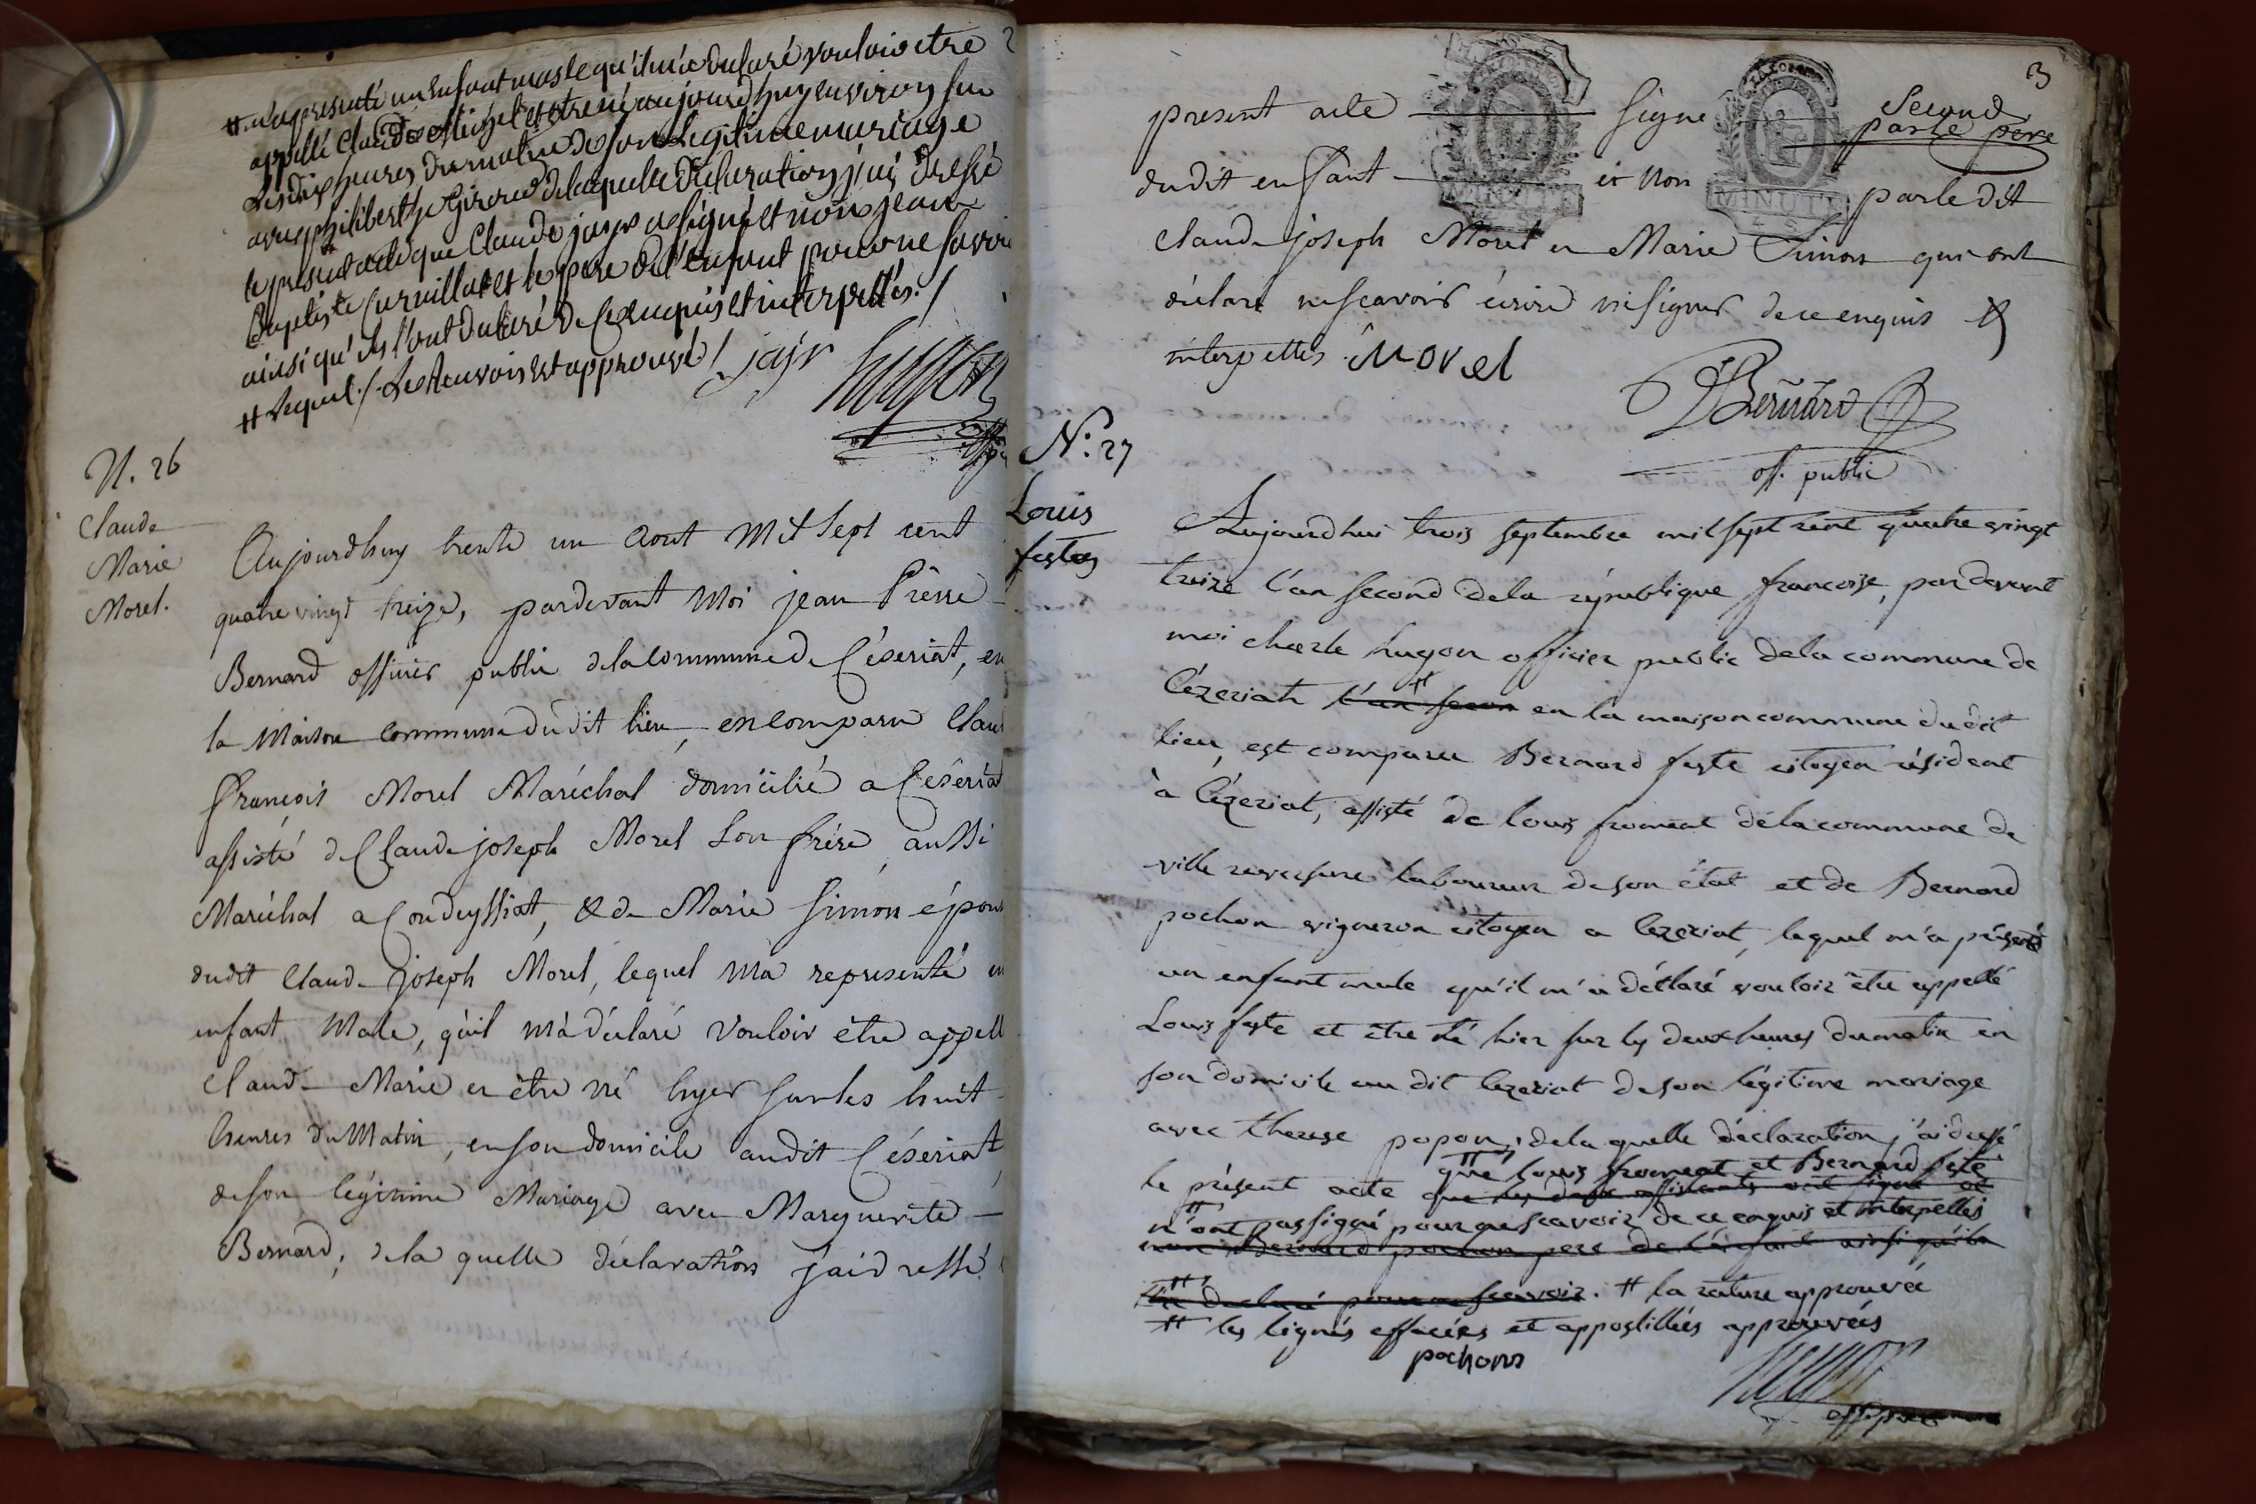 # m'a presenté un enfant masle qu'il m'a déclaré vouloir etre
appellé Claude Michel et etre né aujourd'huy environ sur
les dix heures du matin de son legitime mariage
avec philiberthe de laquelle déclaration j'ai dressé
le present acte que Claude jayr a signé et non jean
Baptiste Curvillat et le pere de l'enfant pour ne savoir
ainsi qu'ils l'ont déclaré de ce enquis et interpellés. /
# lequel ./. Le Renvois est approuvé / jayr
hugon
N. 26
Claude
Marie
Morel.
Aujourdhuy trente un aout Mil Sept cent
quatre vingt treize, pardevant Moi jean Pierre
Bernard officier public de la commune de Céseriat, en
la Maison commune du dit lieu, est comparu Clau
françois Morel Maréchal domicilié a Céseriat
assisté de Claude joseph Morel son frére aussi
Maréchal a Condeyssiat, & de Marie Simon épous
dudit Claude joseph Morel, lequel m'a representé un
enfant Male, qu'il m'a déclaré vouloir être appell
Claude Marie et être né hyer sur les huit
heures du Matin, en son domicile audit Céseriat,
de son légitime Mariage avec Marguerite
Bernard; de la quelle déclaration j'ai dressé
3
present acte signé Second
par le pére
dudit enfant et non par le dit
MINUTE MINUTE
Claude joseph Morel et Marie Simon qui ont
déclaré ne scavoir écrire ni signer de ce enquis &
interpellés. Morel
Bernard
off. public
N.° 27
Louis
feste
Aujourdhui trois septembre mil sept cent quatre vingt
treize l'an second de la république françoise, par devant
moi charle hugon officier public de la commune de
Cézeriat l'an secon en la maison commune du dit
lieu, est comparu Bernard feste citoyen résident
à Cézeriat, assisté de louis froment de la commune de
ville reversure laboureur de son état et de Bernard
pochon vigneron citoyen a Cezeriat, lequel m'a présenté
un enfant male qu'il m'a déclaré vouloir être appellé
Louis feste et être né hier sur les deux heures du matin en
son domicile au dit Cezeriat de son légitime mariage
avec therese popon, de la quelle déclaration j'ai dressé
# que louis froment et Bernard feste
le présent acte que les deux assistants ont signé et
# n'ont pas signé pour ne scavoir de ce enquis et interpellés
non Bernard pochon pere de l'enfant ainsi qu'il
l'a declaré pour ne scavoir. # la rature approuvée
# les lignes effacées et appostillées approuvées
pochon
hugon